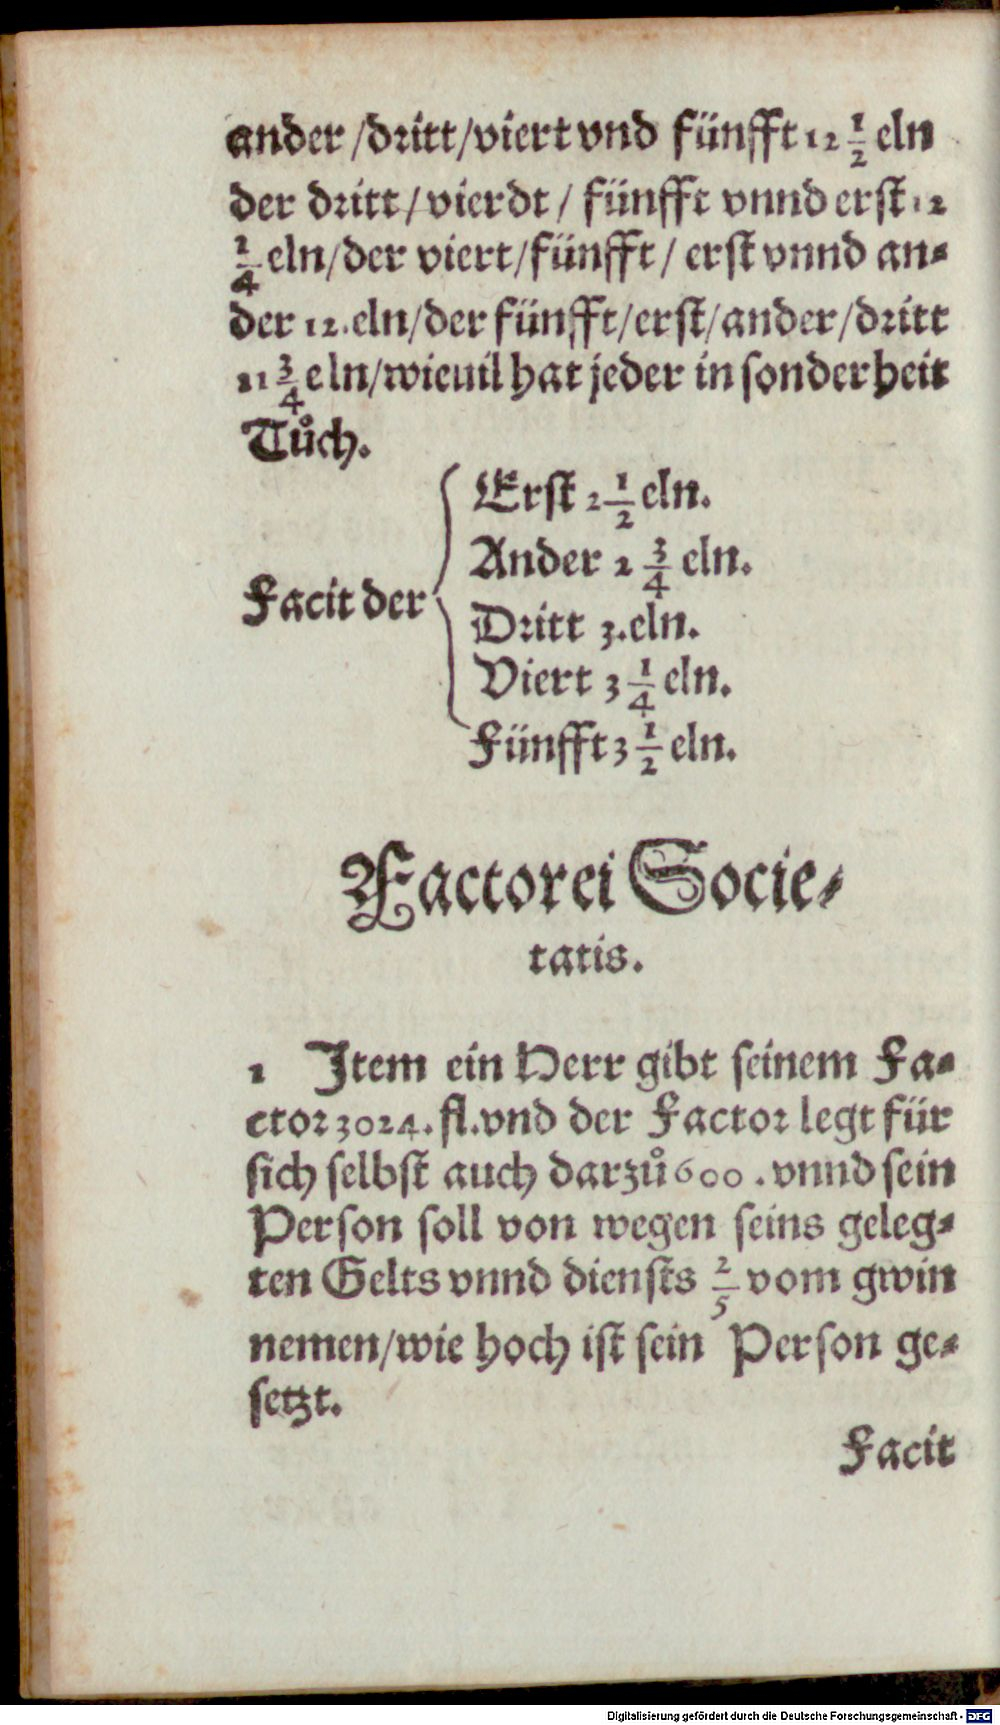 ander /dritt/viert vnd fünfft 12 1/2 eln
der dritt/vierdt/ fünfft vnnd erst 12
1/4 eln/der viert/fünfft/ erst vnnd an-
der 12.eln/der fünfft/erst/ander/dritt
11 3/4 eln/wieuil hat jeder in sonderheit
Tůch.
Facit der
Erst 2 1/2 eln.
Ander 2 3/4 eln.
Dritt 3.eln.
Viert 3 1/4 eln.
Fünfft 3 1/2 eln.
Factorei Socie-
tatis.
1 Item ein Herr gibt seinem Fa-
ctor 3024. fl.vnd der Factor legt für
sich selbst auch darzů 600 . vnnd sein
Person soll von wegen seins geleg-
ten Gelts vnnd diensts 2/5 vom gwin
nemen/wie hoch ist sein Person ge-
setzt.
Facit
Digitalisierung gefördert durch die Deutsche Forschungsgemeinschaft - DFG